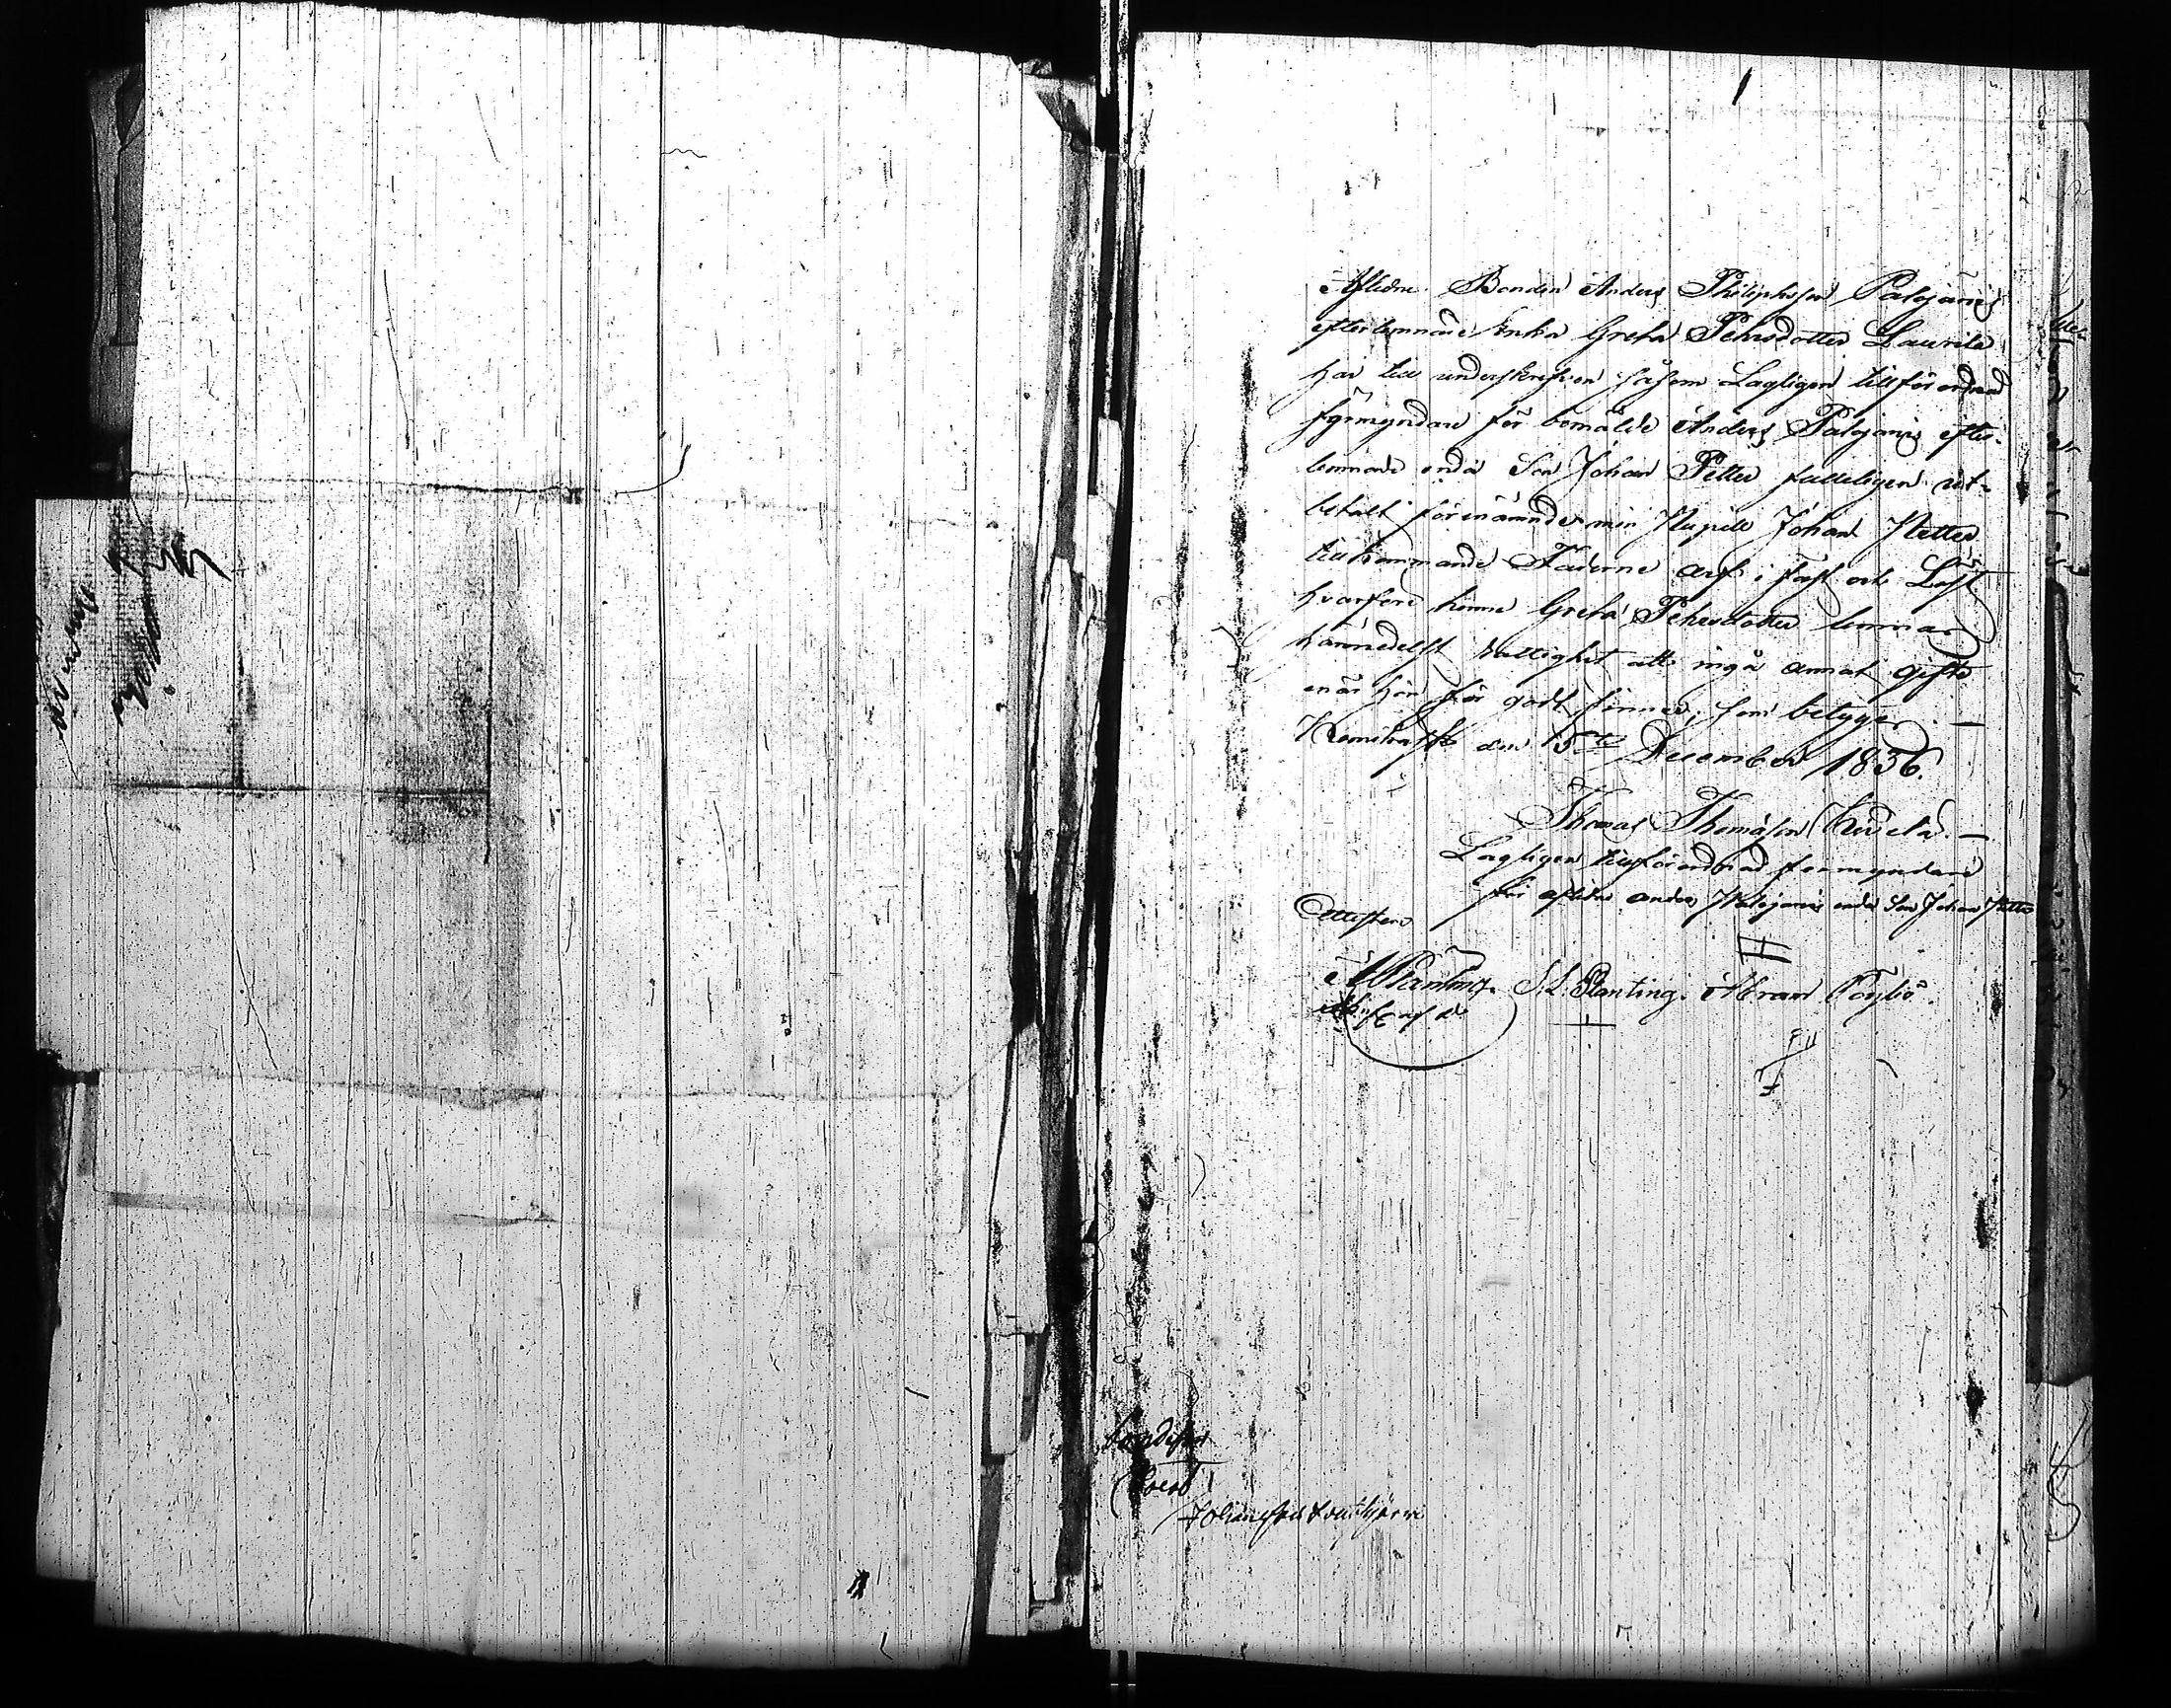 Afledne Bonden Anders Philiphsson Palojärvis
efterlemnade Enka Greta Pehrsdotter Laurila
har till underskrefven såsom Lagligen tillförordnad
förmyndare för bemälde Anders Palojärvis efter-
lemnade enda Son Johan Petter fulleligen ut-
betalt förenämnde min Pupill Johan Petter
tillkommande Fäderne arf i fast och Löst
hvarföre henne Greta Pehrsdotter lemnas
härmedelst rättighet att ingå annat gifte
enär hon för godt finner, som betygar. —
Kemiträsk den 15de December 1836.
Thomas Thomasson —
Lagligen tillförordnad förmyndare
för aflidne Anders Palojärvis enda Son Johan Petter
Attestera
Planting. S. L. Planting. Abram
bondeson
Jacob